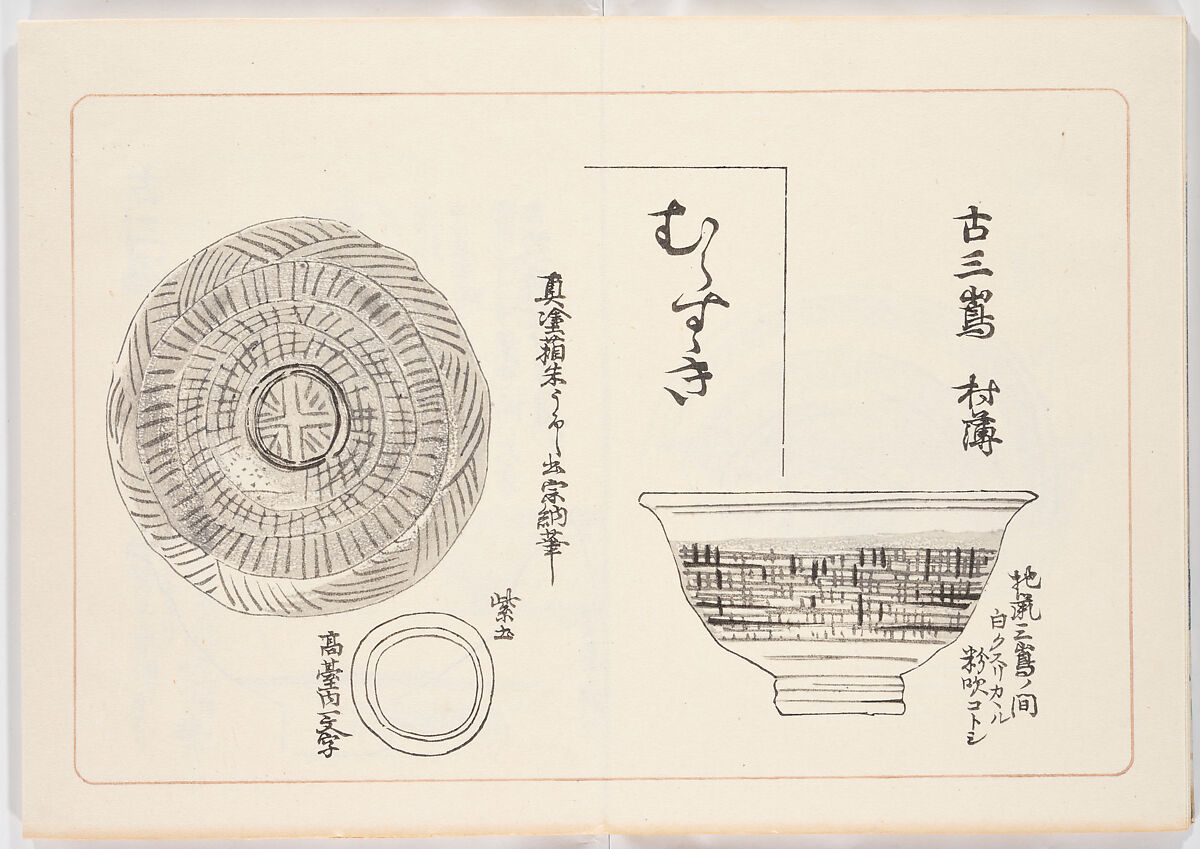 古三嶌 村薄
むらすゝき
地流三嶌ノ間
白クスリカヽル
粉吹コトシ
真塗箱朱うるし書宗納筆
紫土
高䑓内一文字